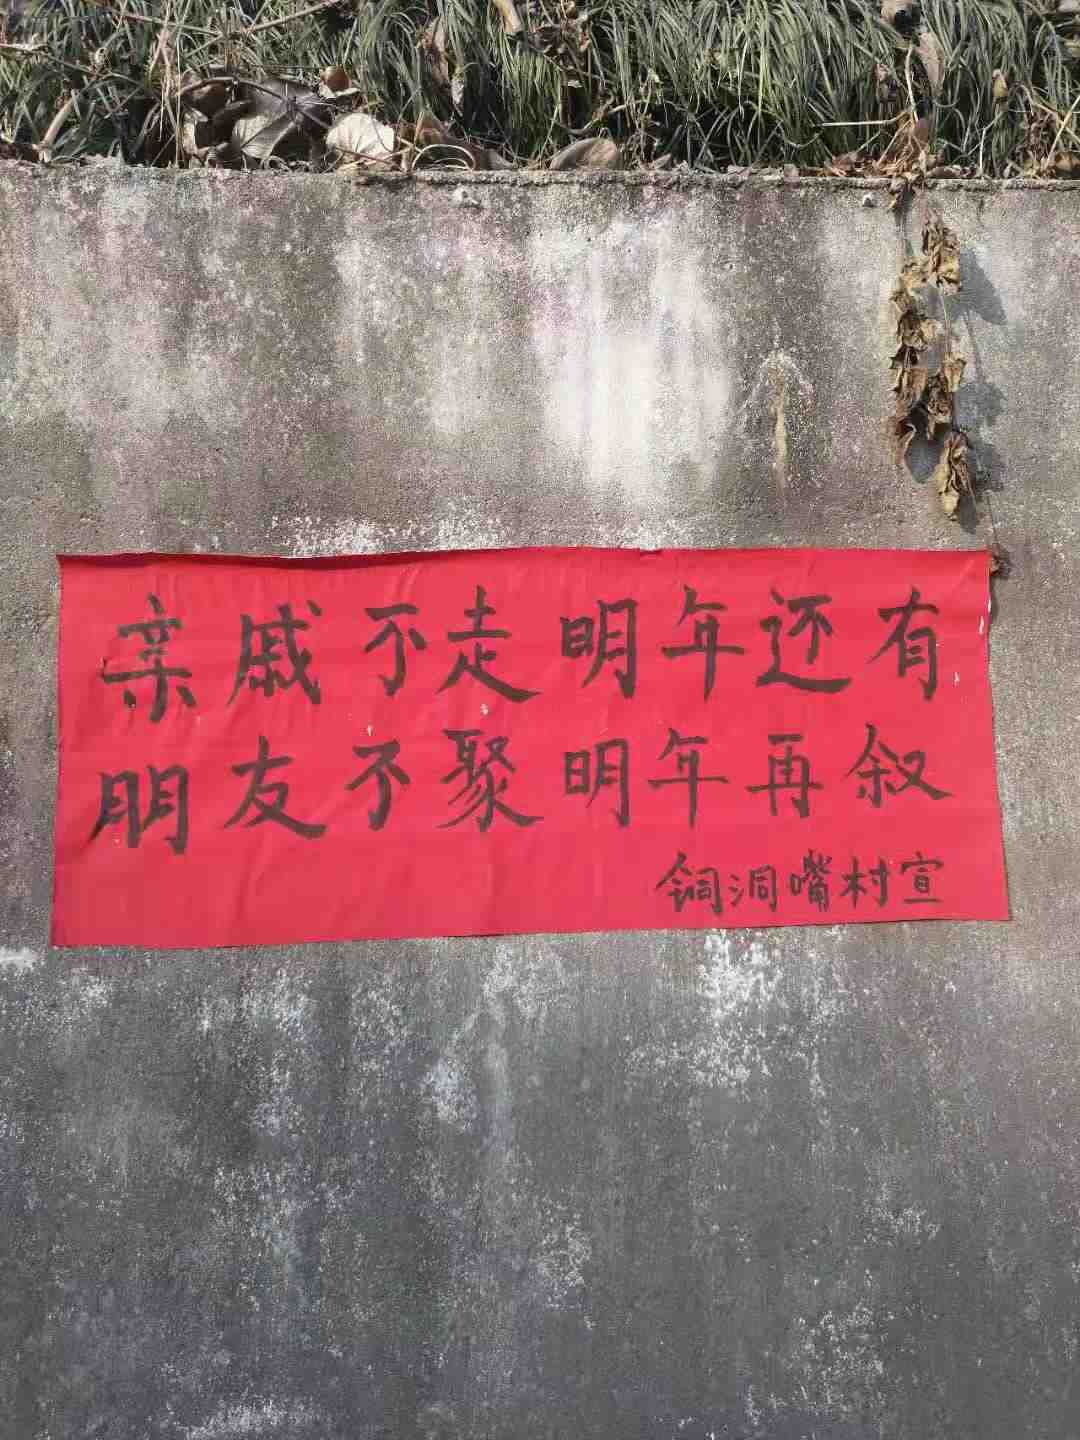 亲戚不走明年还有
朋友不聚明年再叙
铜洞嘴村宣